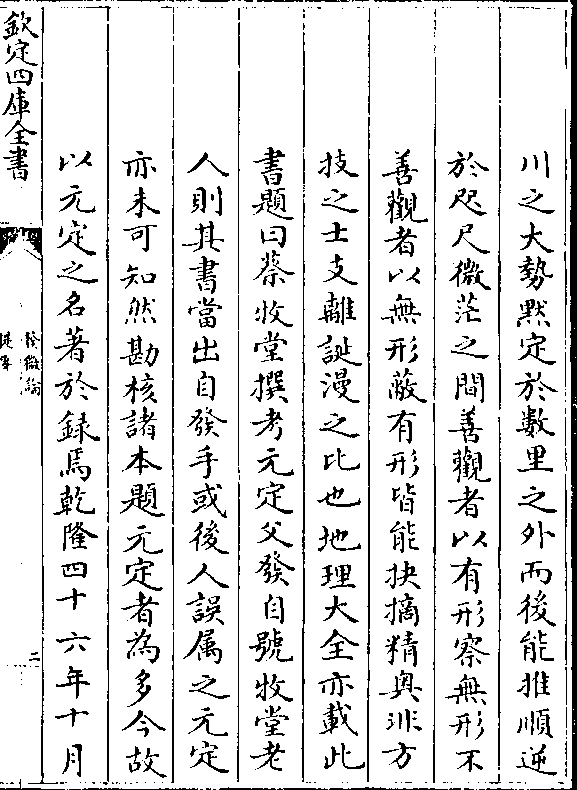 川之大勢黙定於數里之外而後能推順逆
於咫尺微茫之間善觀者以有形察無形不
善觀者以無形蔽有形皆能抉摘精奥非方
技之士支離誕漫之比也地理大全亦載此
書題曰蔡牧堂撰考元定父發自號牧堂老
人則其書當出自發手或後人誤属之元定
亦未可知然勘核諸本題元定者為多今故
以元定之名著於録焉乾隆四十六年十月
欽定四庫全書
發微論
提要
二